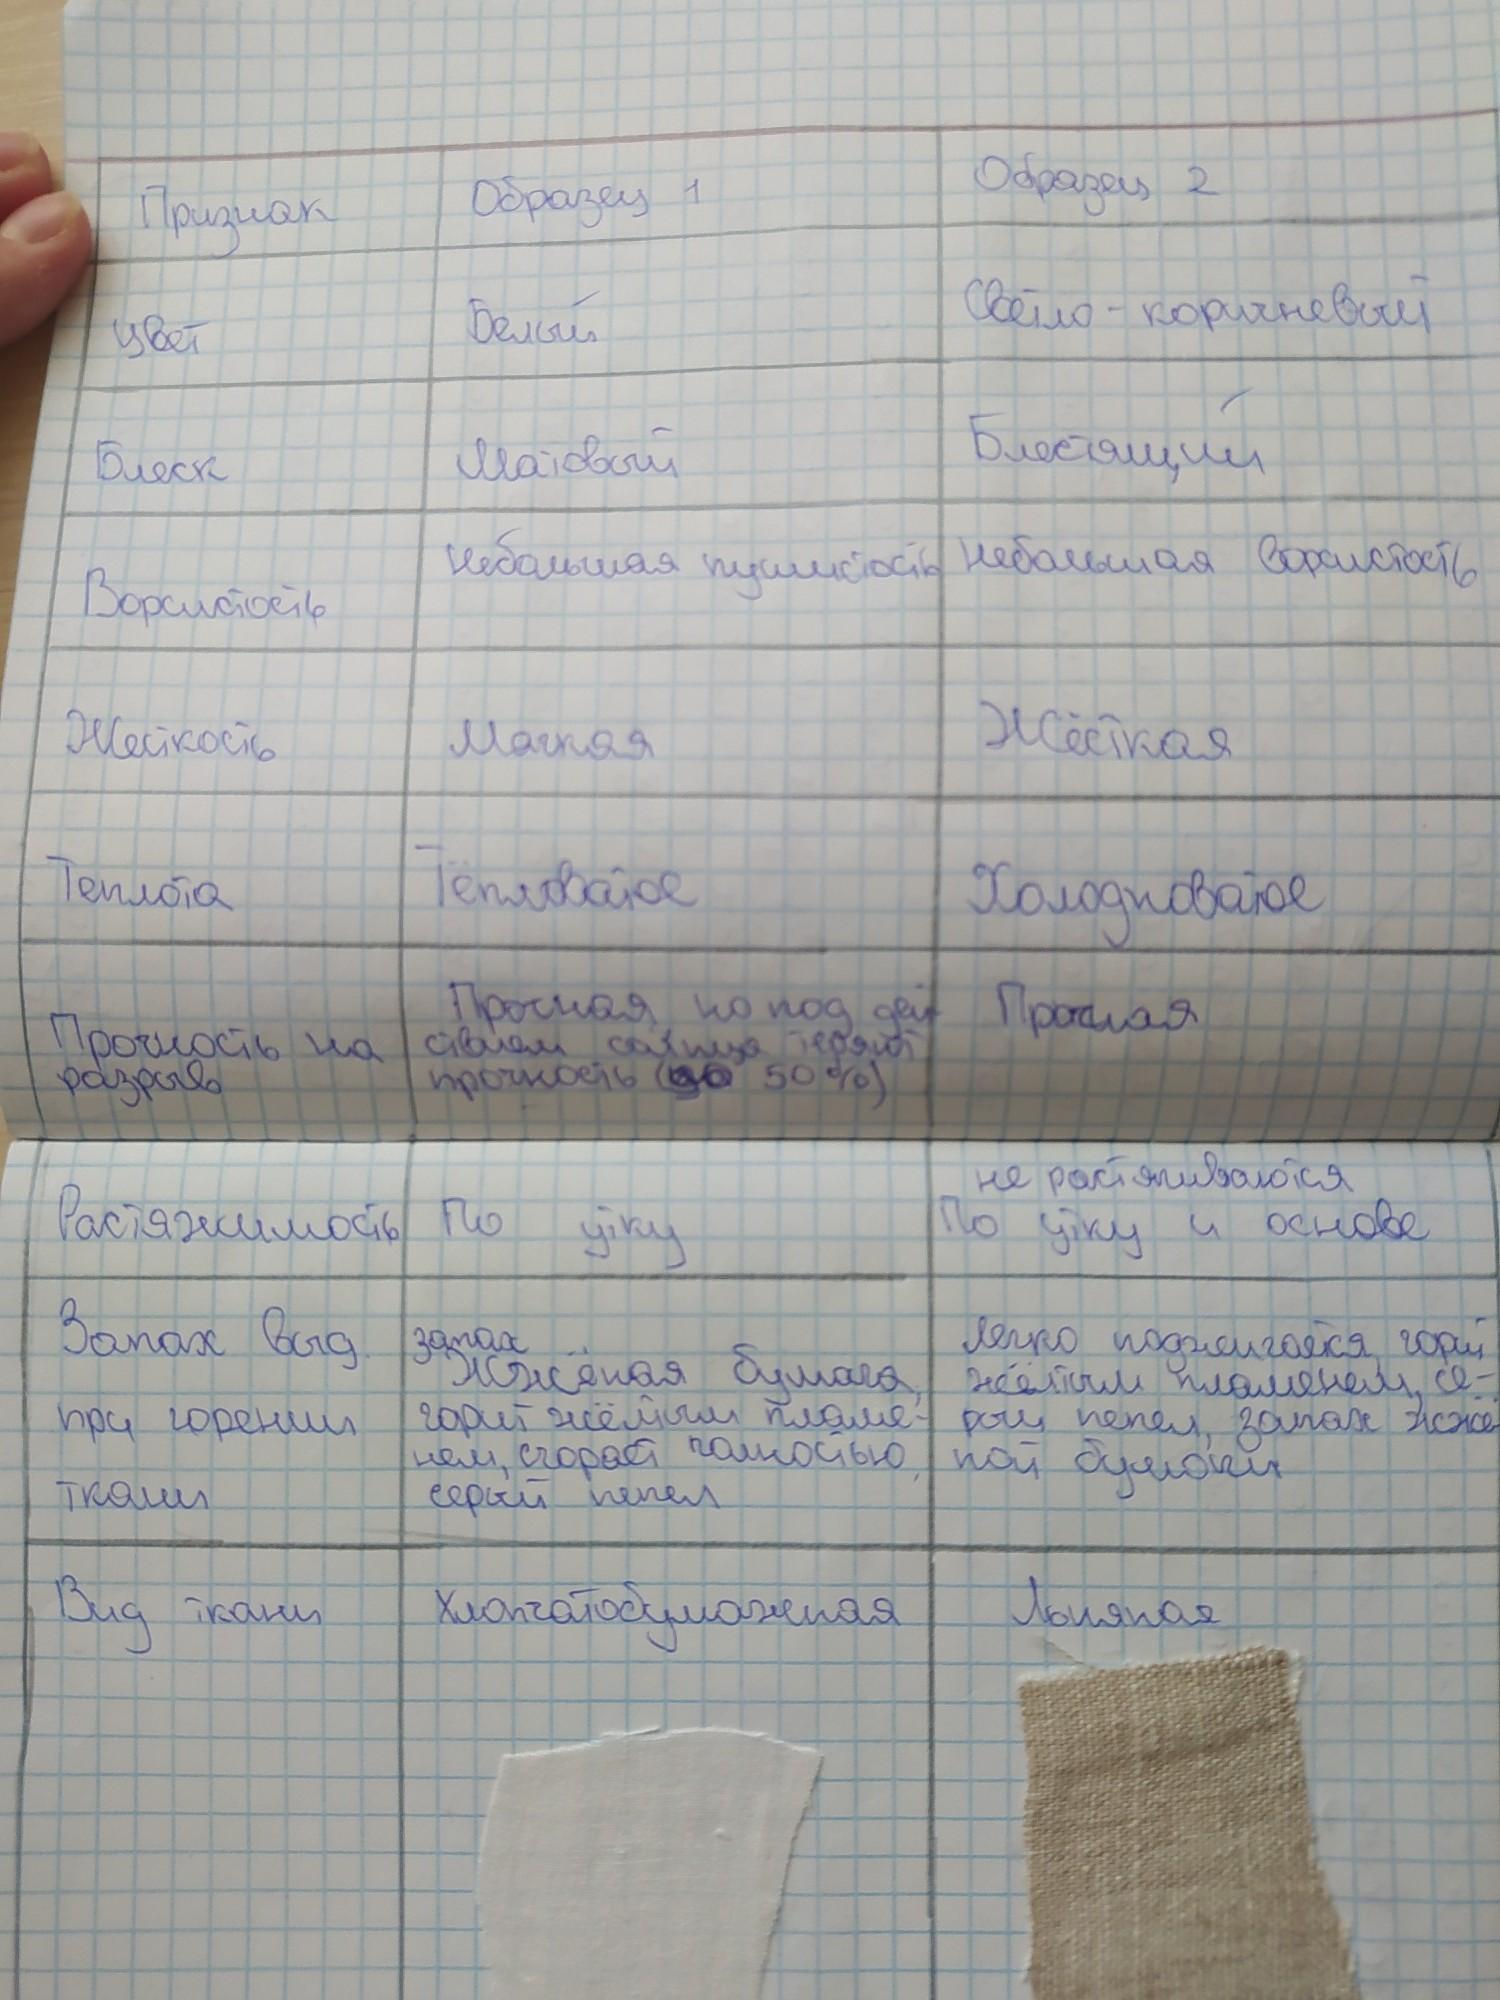 Признак Образец 1 Образец 2
Цвет Белый Светло-коричневый
Блеск Матовый Блестящий
Ворсистость Небольшая пушистость Небольшая ворсистость
Жесткость Мягкая Жёсткая
Теплота Тепловатое Холодноватое
Прочность на разрыв
Прочная, но под дей
ствием солнца теряет
прочность (до 50%)
Прочная
Растяжимость По утку
не растягиваются
По утку и основе
Запах выд.
при горении
ткани
запах
Жжёная бумага,
горит жёлтым пламе-
нем, сгорает полностью,
серый пепел
Легко поджигается, горит
жёлтым пламенем, се-
рый пепел, запах жжё
ной бумаги
Вид ткани Хлопчатобумажная Льняная